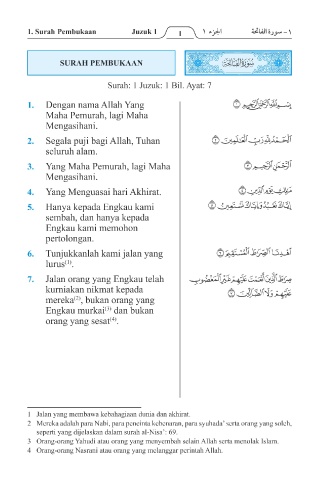 1. Surah Pembukaan Juzuk 1 1 الجزء ١ ١ - سورة الفاتحة
SURAH PEMBUKAAN سُورَةُ الفَاتِحَةِ
Surah: 1 Juzuk: 1 Bil. Ayat: 7
1. Dengan nama Allah Yang
Maha Pemurah, lagi Maha
Mengasihani.
بِسْمِ ٱللَّهِ ٱلرَّحْمَٰنِ ٱلرَّحِيمِ ١
2. Segala puji bagi Allah, Tuhan
seluruh alam.
ٱلْحَمْدُ لِلَّهِ رَبِّ ٱلْعَٰلَمِينَ ٢
3. Yang Maha Pemurah, lagi Maha
Mengasihani.
ٱلرَّحْمَٰنِ ٱلرَّحِيمِ ٣
4. Yang Menguasai hari Akhirat.
مَٰلِكِ يَوْمِ ٱلدِّينِ ٤
5. Hanya kepada Engkau kami
sembah, dan hanya kepada
Engkau kami memohon
pertolongan.
إِيَّاكَ نَعْبُدُ وَإِيَّاكَ نَسْتَعِينُ ٥
6. Tunjukkanlah kami jalan yang
lurus(1).
ٱهْدِنَا ٱلصِّرَٰطَ ٱلْمُسْتَقِيمَ ٦
7. Jalan orang yang Engkau telah
kurniakan nikmat kepada
mereka(2), bukan orang yang
Engkau murkai(3) dan bukan
orang yang sesat(4).
صِرَٰطَ ٱلَّذِينَ أَنْعَمْتَ عَلَيْهِمْ غَيْرِ ٱلْمَغْضُوبِ
عَلَيْهِمْ وَلَا ٱلضَّآلِّينَ ٧
1 Jalan yang membawa kebahagiaan dunia dan akhirat.
2 Mereka adalah para Nabi, para pencinta kebenaran, para syuhada' serta orang yang soleh,
seperti yang dijelaskan dalam surah al-Nisa': 69.
3 Orang-orang Yahudi atau orang yang menyembah selain Allah serta menolak Islam.
4 Orang-orang Nasrani atau orang yang melanggar perintah Allah.